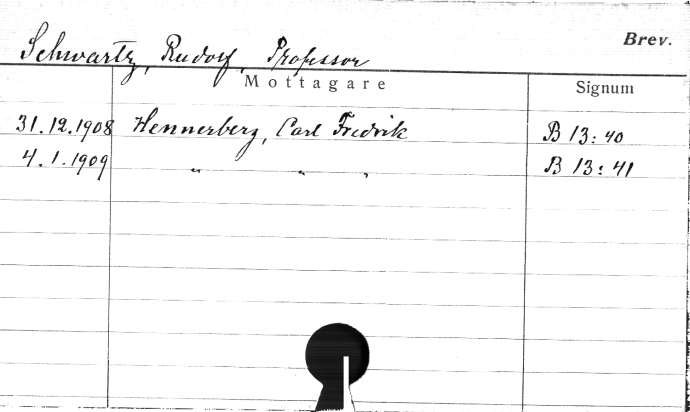 Brev.
Schwartz, Rudolf, Professor
Mottagare Signum
31.12.1908 Hennerberg, Carl Fredrik B 13:40
4.1.1909 " " , B 13:41